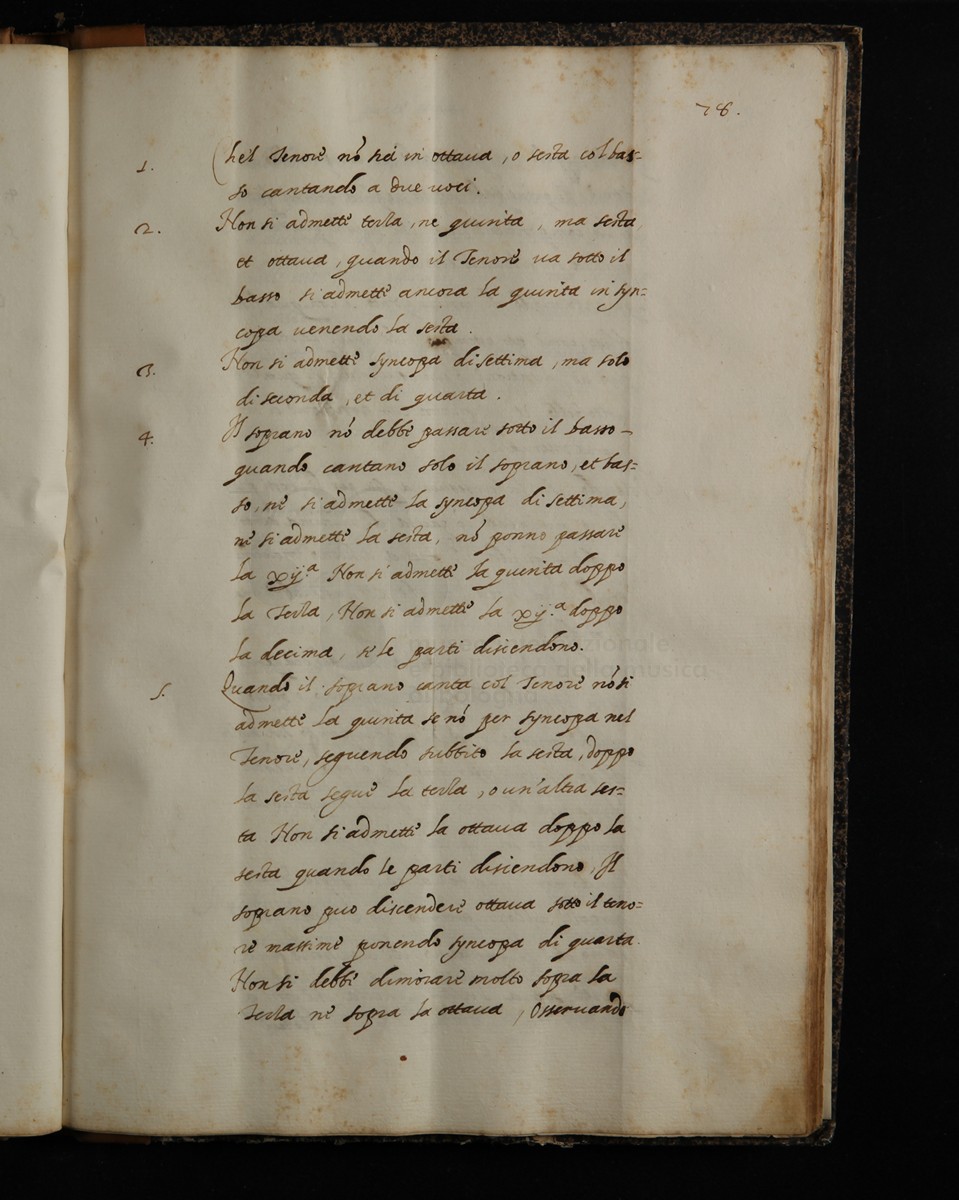 78.
1. Che'l Tenore nō stia in ottaua, o sesta col bas=
so cantando a due uoci.
2. Non si admette terza, ne quinta, ma sesta
et ottaua, quando il Tenore ua sotto il
basso si admette ancora la quinta in syn=
copa uenendo la sesta.
3. Non si admette syncopa di settima, ma solo
di seconda, et di quarta.
4. Il soprano nō debbe passare sotto il basso
quando cantano solo il soprano, et bas=
so, ne si admette la syncopa di settima,
ne si admette la sesta, nō ponno passare
la xij.a Non si admette la quinta doppo
la Terza, Non si admette la xij.a doppo
la decima, se le parti discendono.
5. Quando il soprano canta col Tenore nō si
admette la quinta se nō per syncopa nel
Tenore, seguendo subbito la sesta, doppo
la sesta segue la terza, o un'altra ses=
ta Non si admette la ottaua doppo la
sesta quando le parti discendono, Il
soprano puo discendere ottaua sotto il teno=
re massime ponendo syncopa di quarta.
Non si debbe dimorare molto sopra la
Terza ne sopra la ottaua, Osseruando